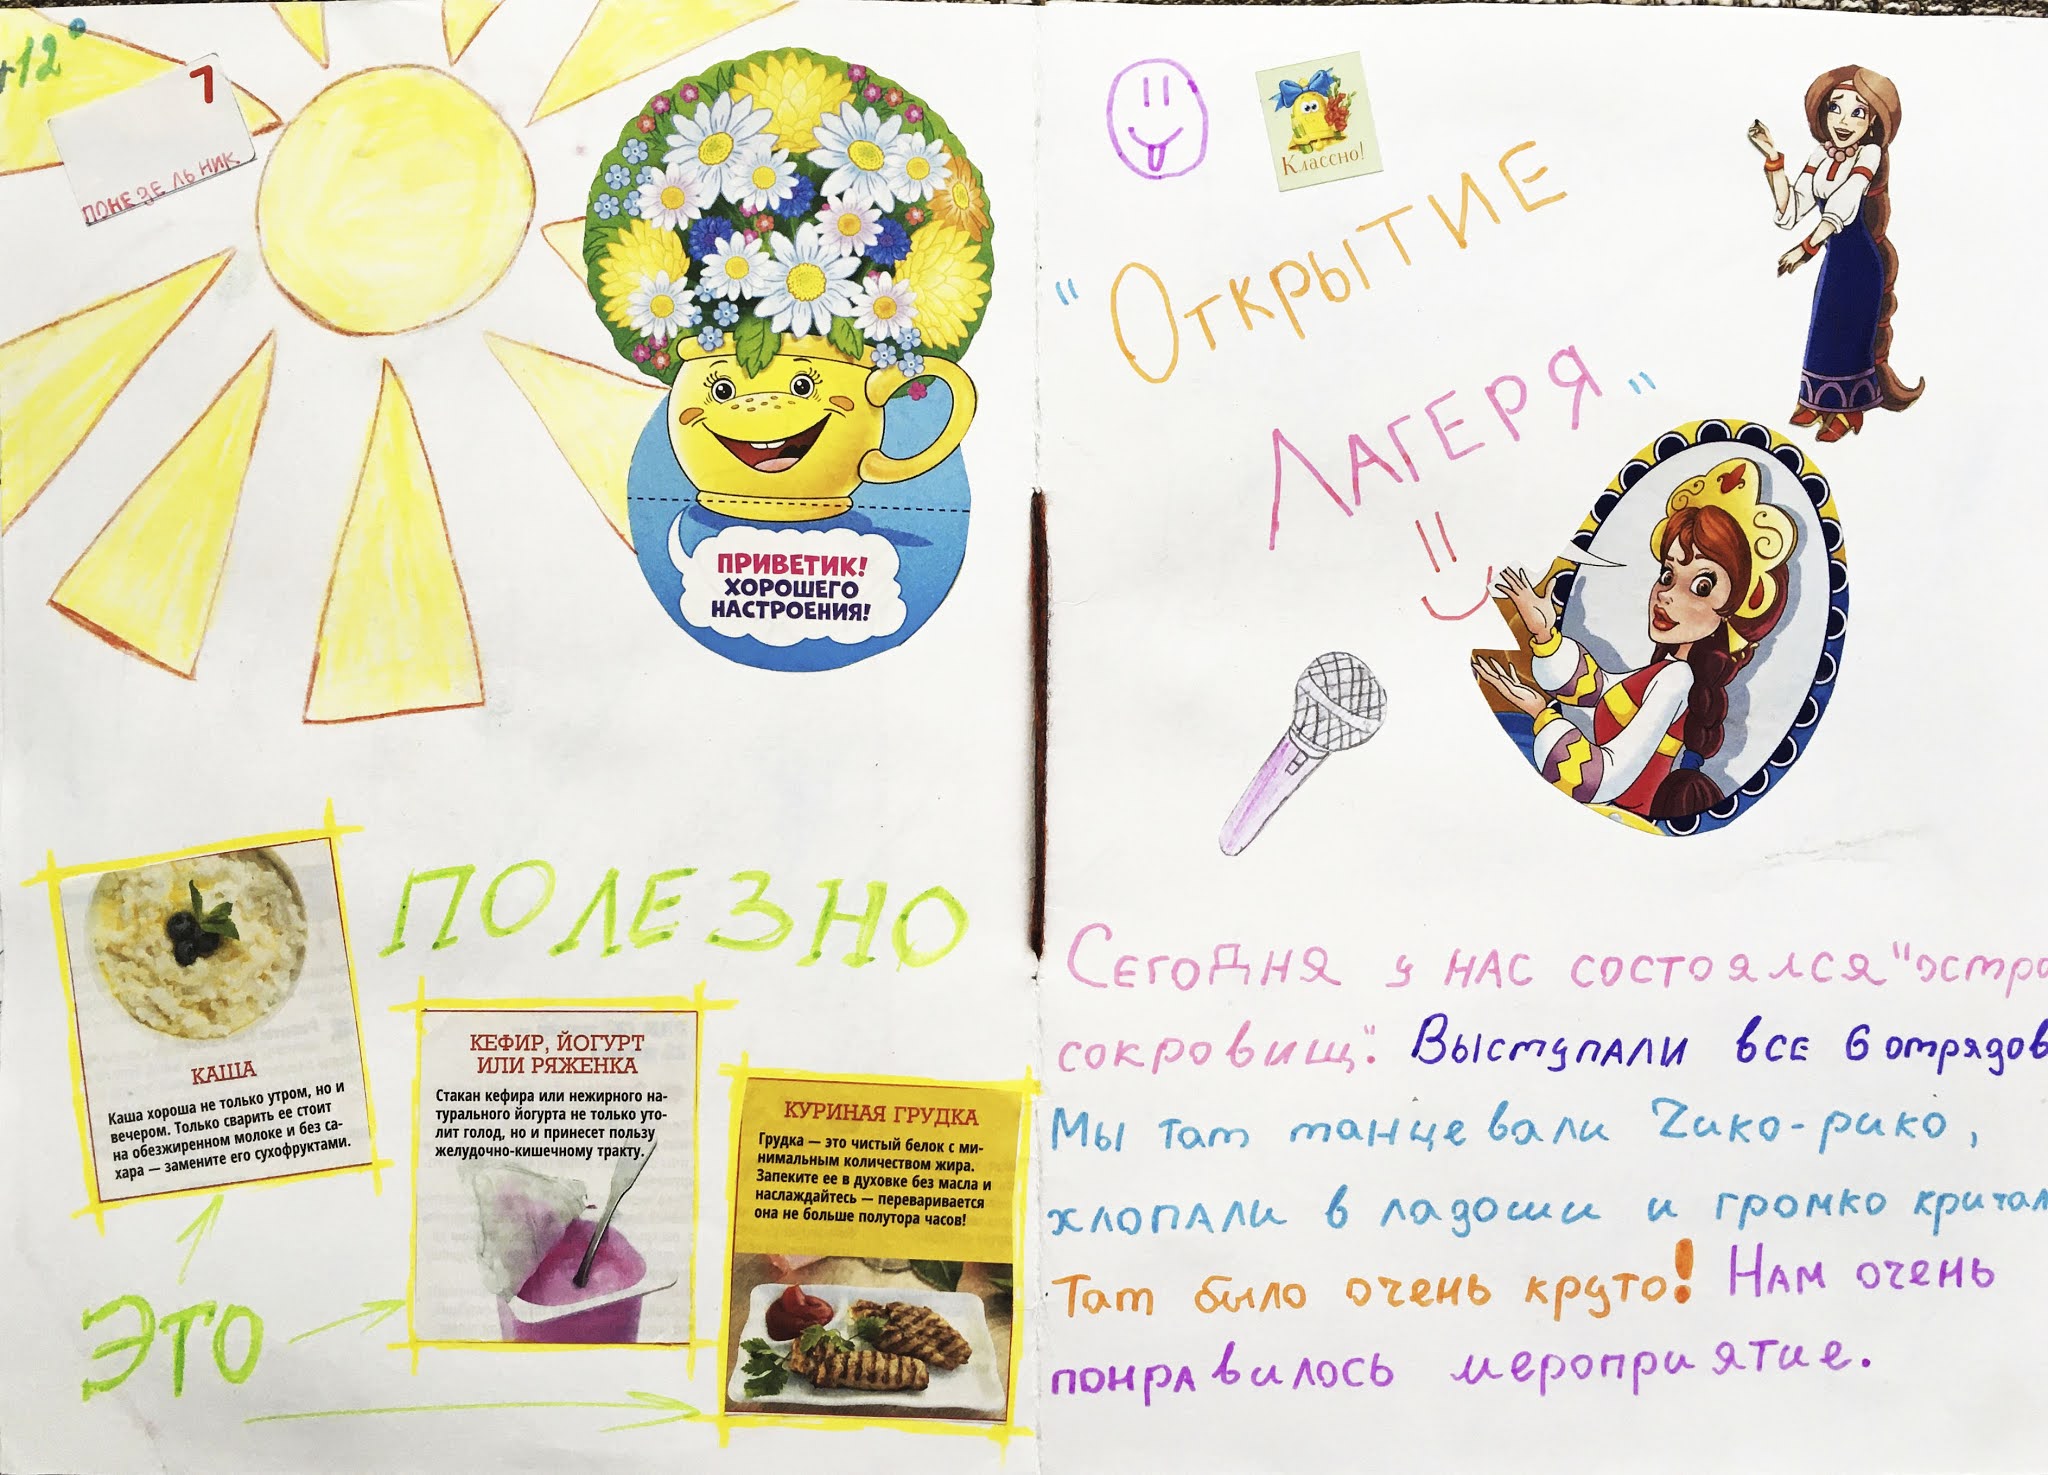 +12°
1
ПОНЕЗЕЛЬНИК
ПРИВЕТИК!
ХОРОШЕГО
НАСТРОЕНИЯ!
ПОЛЕЗНО
КАША
Каша хороша не только утром, но и
вечером. Только сварить ее стоит
на обезжиренном молоке и без са-
хара — замените его сухофруктами.
КЕФИР, ЙОГУРТ
ИЛИ РЯЖЕНКА
Стакан кефира или нежирного на-
турального йогурта не только уто-
лит голод, но и принесет пользу
желудочно-кишечному тракту.
КУРИНАЯ ГРУДКА
Грудка — это чистый белок с ми-
нимальным количеством жира.
Запеките ее в духовке без масла и
наслаждайтесь — переваривается
она не больше полутора часов!
ЭТО
Классно!
"ОТКРЫТИЕ
ЛАГЕРЯ"
Сегодня у нас состоялся "остро
сокровищ". Выступали все 6 отрядов
Мы там танцевали Чико-рико,
хлопали в ладоши и громко кричал
Там было очень круто! Нам очень
понравилось мероприятие.